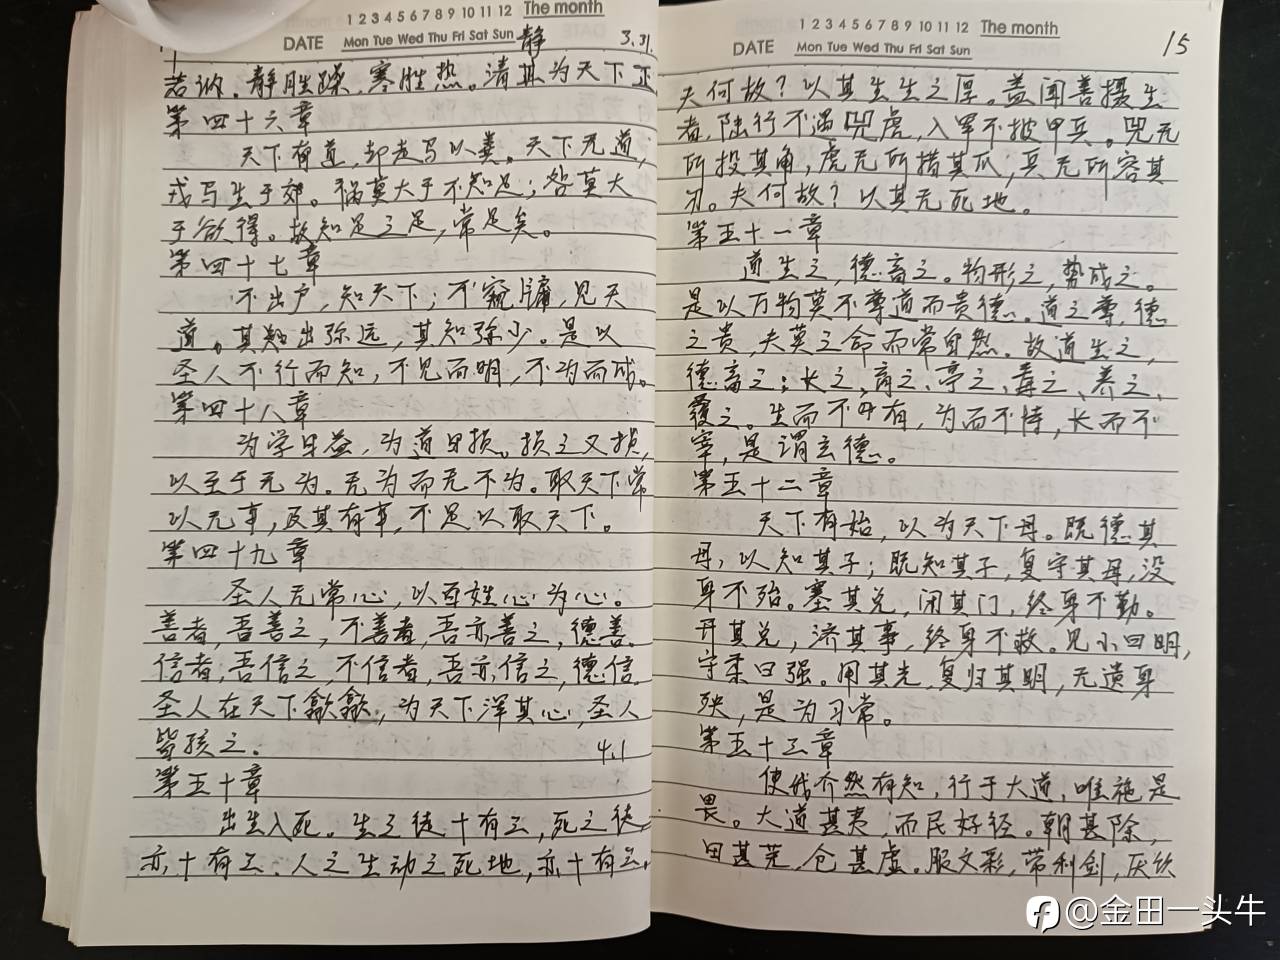 1 2 3 4 5 6 7 8 9 10 11 12 The month
DATE Mon Tue Wed Thu Fri Sat Sun 静 3.31.
若讷。静胜躁，寒胜热。清其为天下正
第四十六章
天下有道，却走马以粪。天下无道，
戎马生于郊。祸莫大于不知足；咎莫大
于欲得。故知足之足，常足矣。
第四十七章
不出户，知天下；不窥牖，见天
道。其出弥远，其知弥少。是以
圣人不行而知，不见而明，不为而成。
第四十八章
为学日益，为道日损。损之又损，
以至于无为。无为而无不为。取天下常
以无事，及其有事，不足以取天下。
第四十九章
圣人无常心，以百姓心为心。
善者，吾善之，不善者，吾亦善之，德善。
信者，吾信之，不信者，吾亦信之，德信
圣人在天下歙歙，为天下浑其心，圣人
皆孩之。 4.1
第五十章
出生入死。生之徒十有三，死之徒，
亦十有三，人之生动之死地，亦十有三，
1 2 3 4 5 6 7 8 9 10 11 12 The month
DATE Mon Tue Wed Thu Fri Sat Sun
15
夫何故？以其生生之厚。盖闻善摄生
者，陆行不遇兕虎，入军不披甲兵。兕无
所投其角，虎无所措其爪；兵无所容其
刃。夫何故？以其无死地。
第五十一章
道生之，德畜之。物形之，势成之。
是以万物莫不尊道而贵德。道之尊，德
之贵，夫莫之命而常自然。故道生之，
德畜之；长之、育之、亭之、毒之、养之、
覆之。生而不有，为而不恃，长而不
宰，是谓玄德。
第五十二章
天下有始，以为天下母。既德其
母，以知其子；既知其子，复守其母，没
身不殆。塞其兑，闭其门，终身不勤。
开其兑，济其事，终身不救。见小曰明，
守柔曰强。用其光，复归其明，无遗身
殃，是为习常。
第五十三章
使我介然有知，行于大道，唯施是
畏。大道甚夷，而民好径。朝甚除，
田甚芜，仓甚虚。服文彩，带利剑，厌饮
@金田一头牛